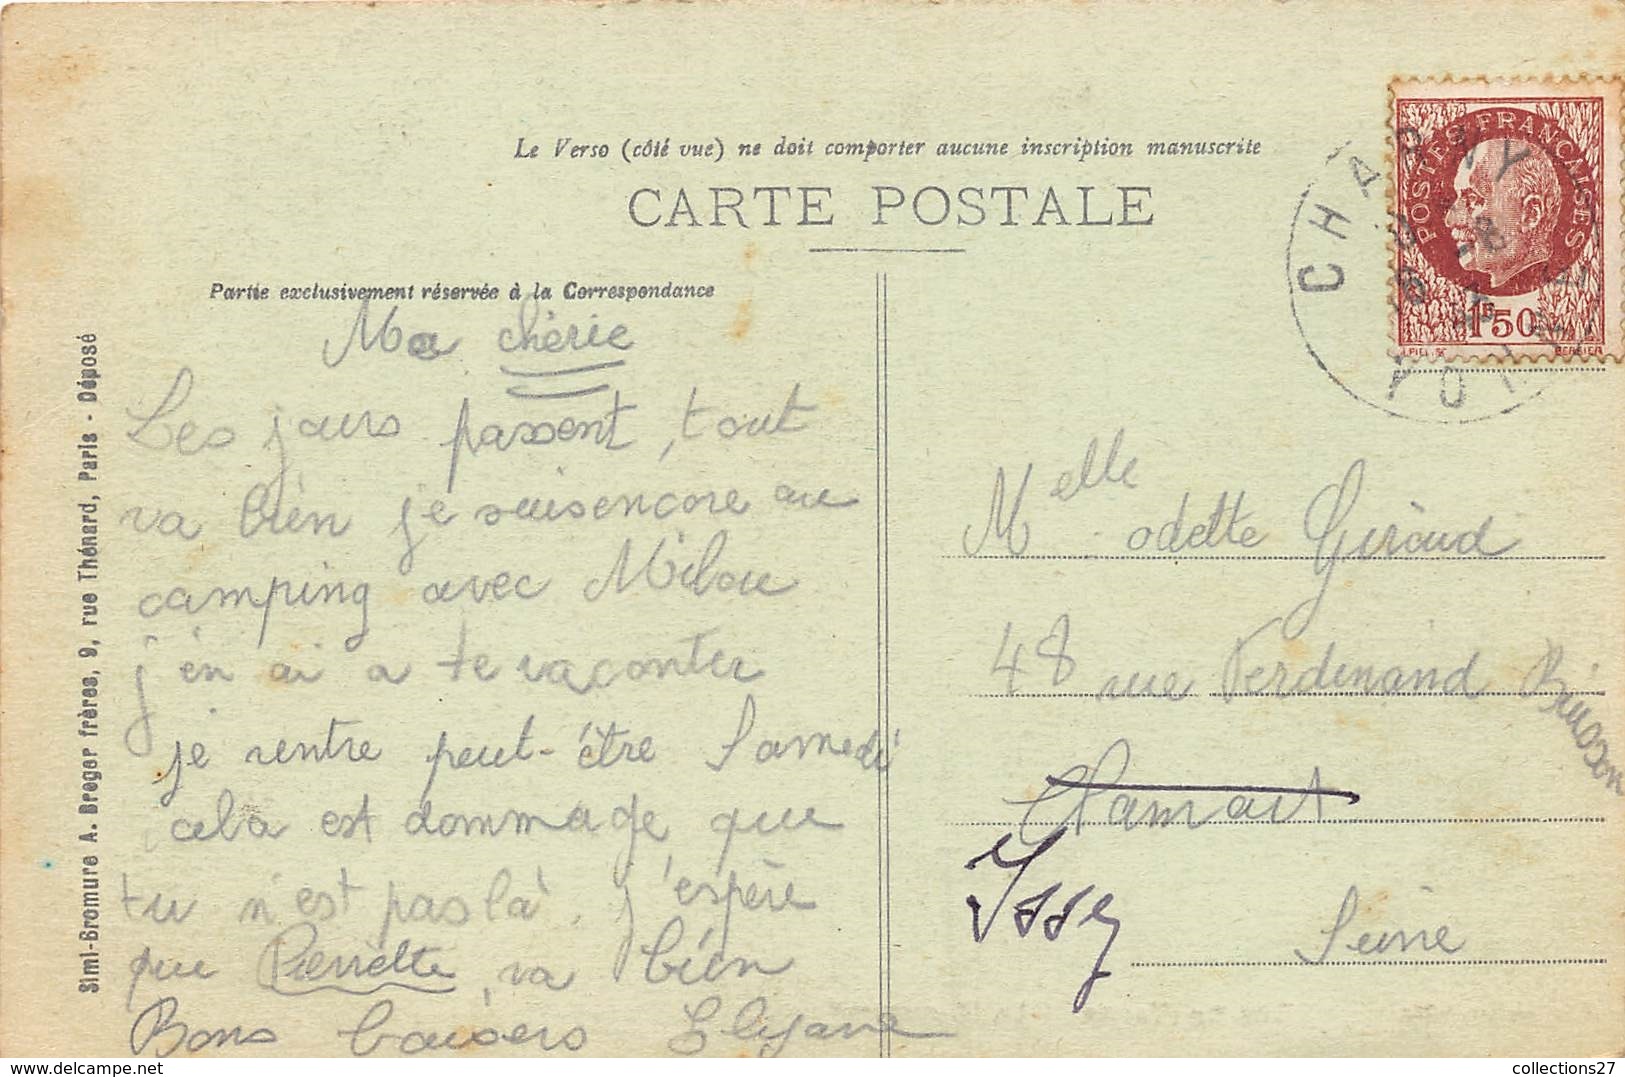 Le Verso (côté vue) ne doit comporter aucune inscription manuscrite
CARTE POSTALE
Partie exclusivement réservée à la Correspondance
Simi-Bromure A. Breger frères, 9, rue Thénard, Paris - Déposé
Ma chérie
Les jours passent, tout
va bien je suis encore au
camping avec Milou
j'en ai a te raconter
je rentre peut-être Samedi
cela est dommage que
tu n'est pas là. j'espère
que Pierrette va bien
Bons baisers Elyane
POSTES FRANÇAISES
1F50
CHARNY
YONNE
Melle odette Giraud
48 rue Ferdinand Buisson
Clamart
Issy
Seine
collections27